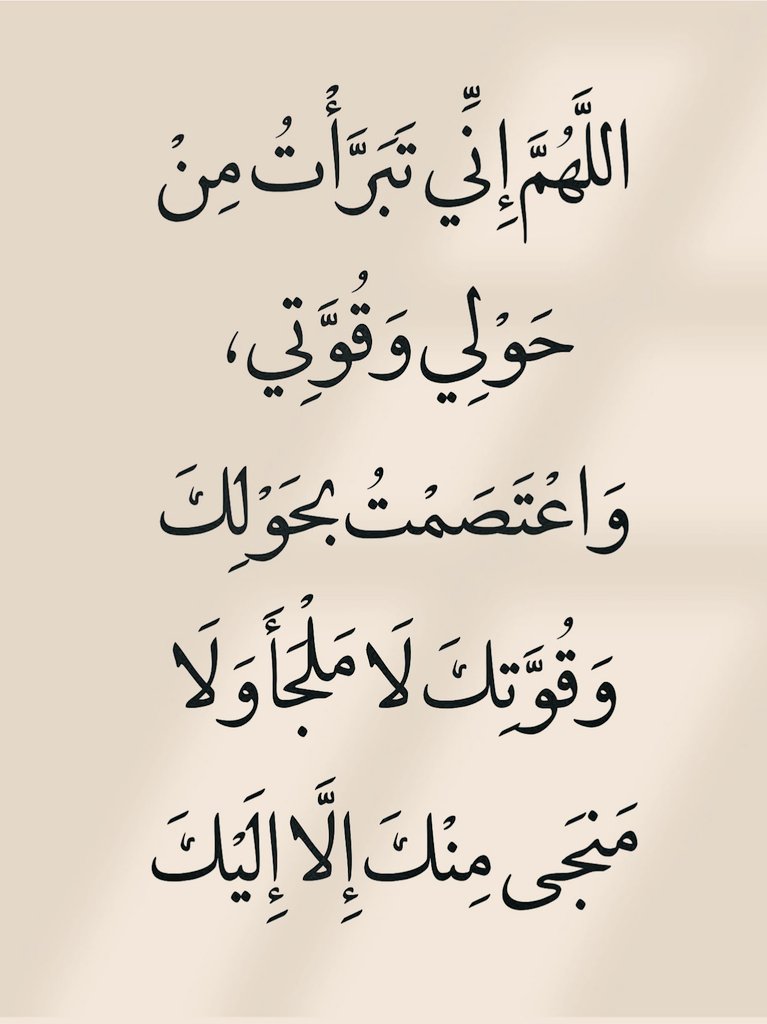 اللَّهُمَّ إِنِّي تَبَرَّأْتُ مِنْ
حَوْلِي وَقُوَّتِي،
وَاعْتَصَمْتُ بحَوْلِكَ
وَقُوَّتِكَ لَا مَلْجَأَ وَلَا
مَنجَى مِنْكَ إِلَّا إِلَيْكَ